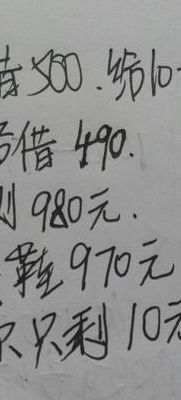 借500.给10
借490.
980元.
鞋970元
只剩10元